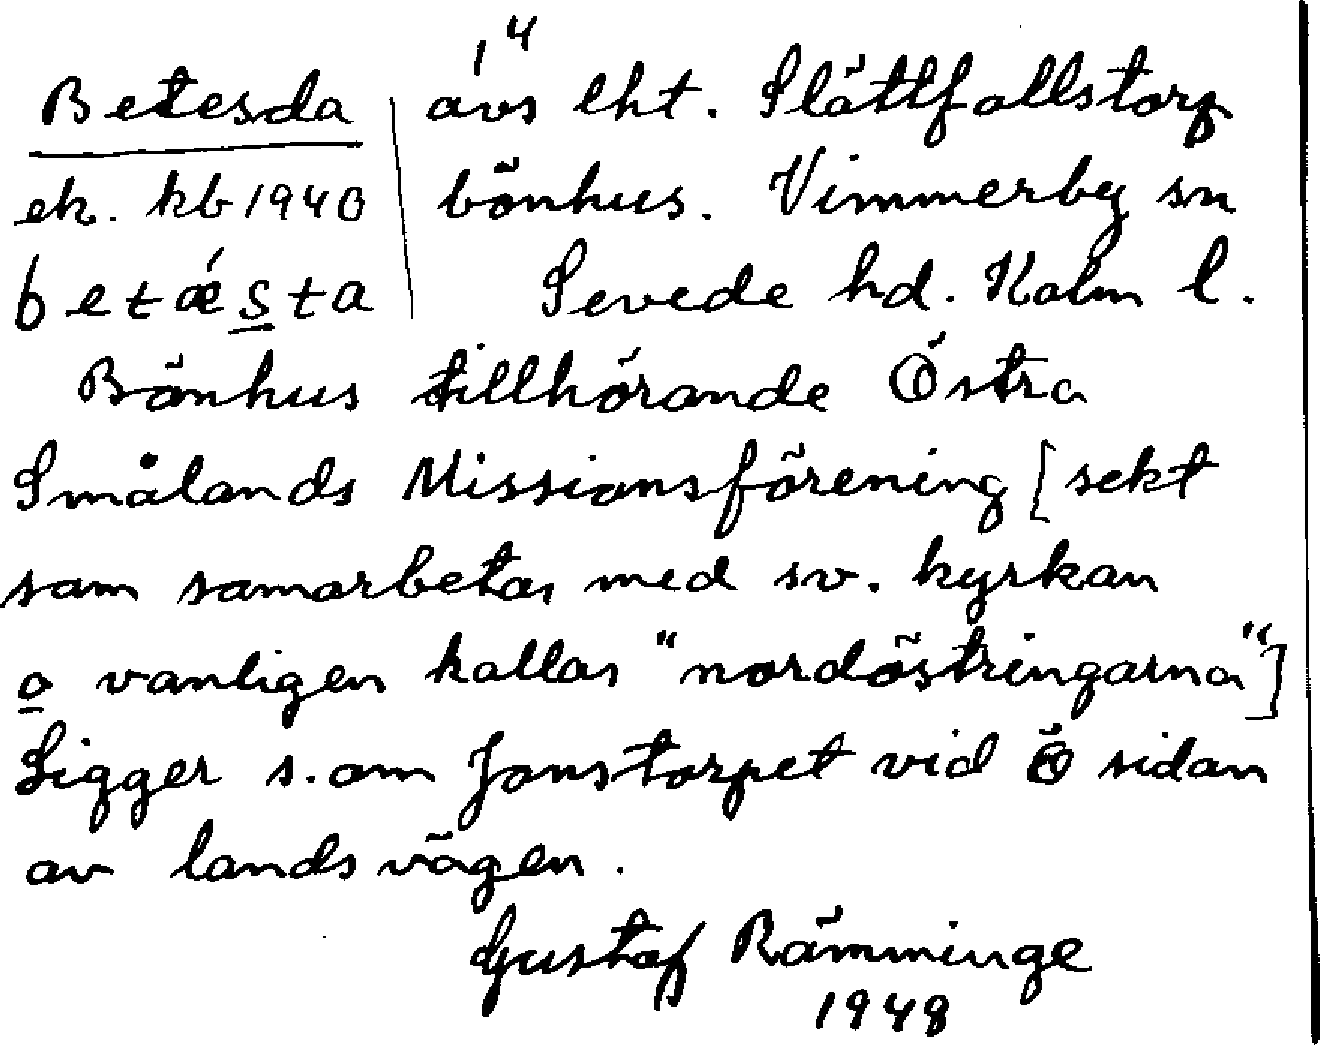 1 4
Betesda avs lht. Slättfallstorp
ek. kb 1940 bönhus. Vimmerby sn
betǽsta Sevede hd. Kalm l.
Bönhus tillhörande Östra
Smålands Missionsförening [sekt
som samarbetar med sv. kyrkan
o vanligen kallas "nordöstringarna"]
Ligger s. om Jonstorpet vid Ö sidan
av landsvägen.
Gustaf Rämminge
1948